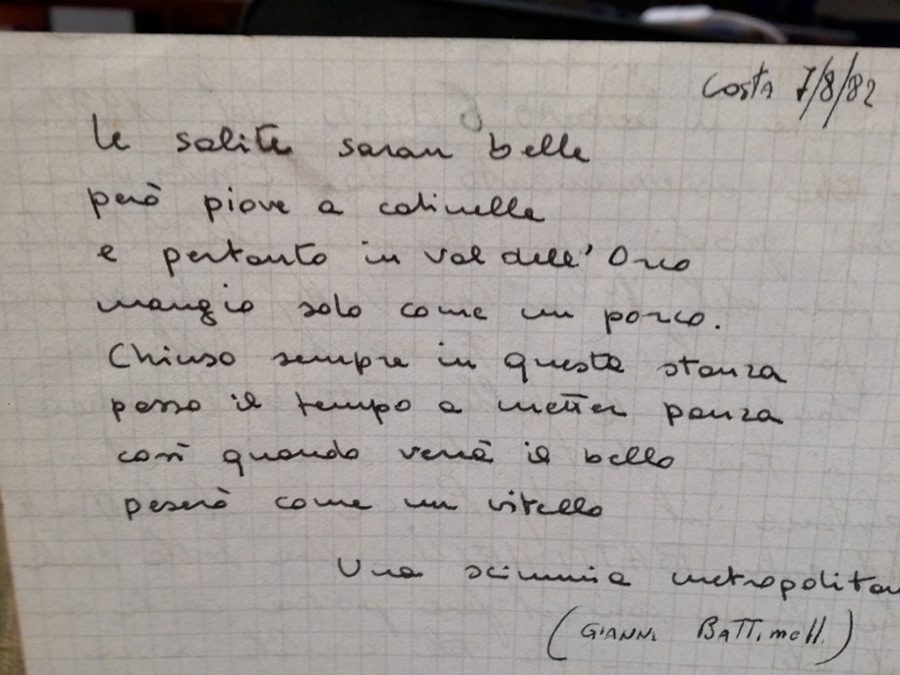 Costa 7/8/82
le salite saran belle
però piove a catinelle
e pertanto in val dell'Orco
mangio solo come un porco.
Chiuso sempre in questa stanza
passo il tempo a metter panza
così quando verrà il bello
peserò come un vitello
Una scimmia metropolitan
(GIANNI BATTimelli)